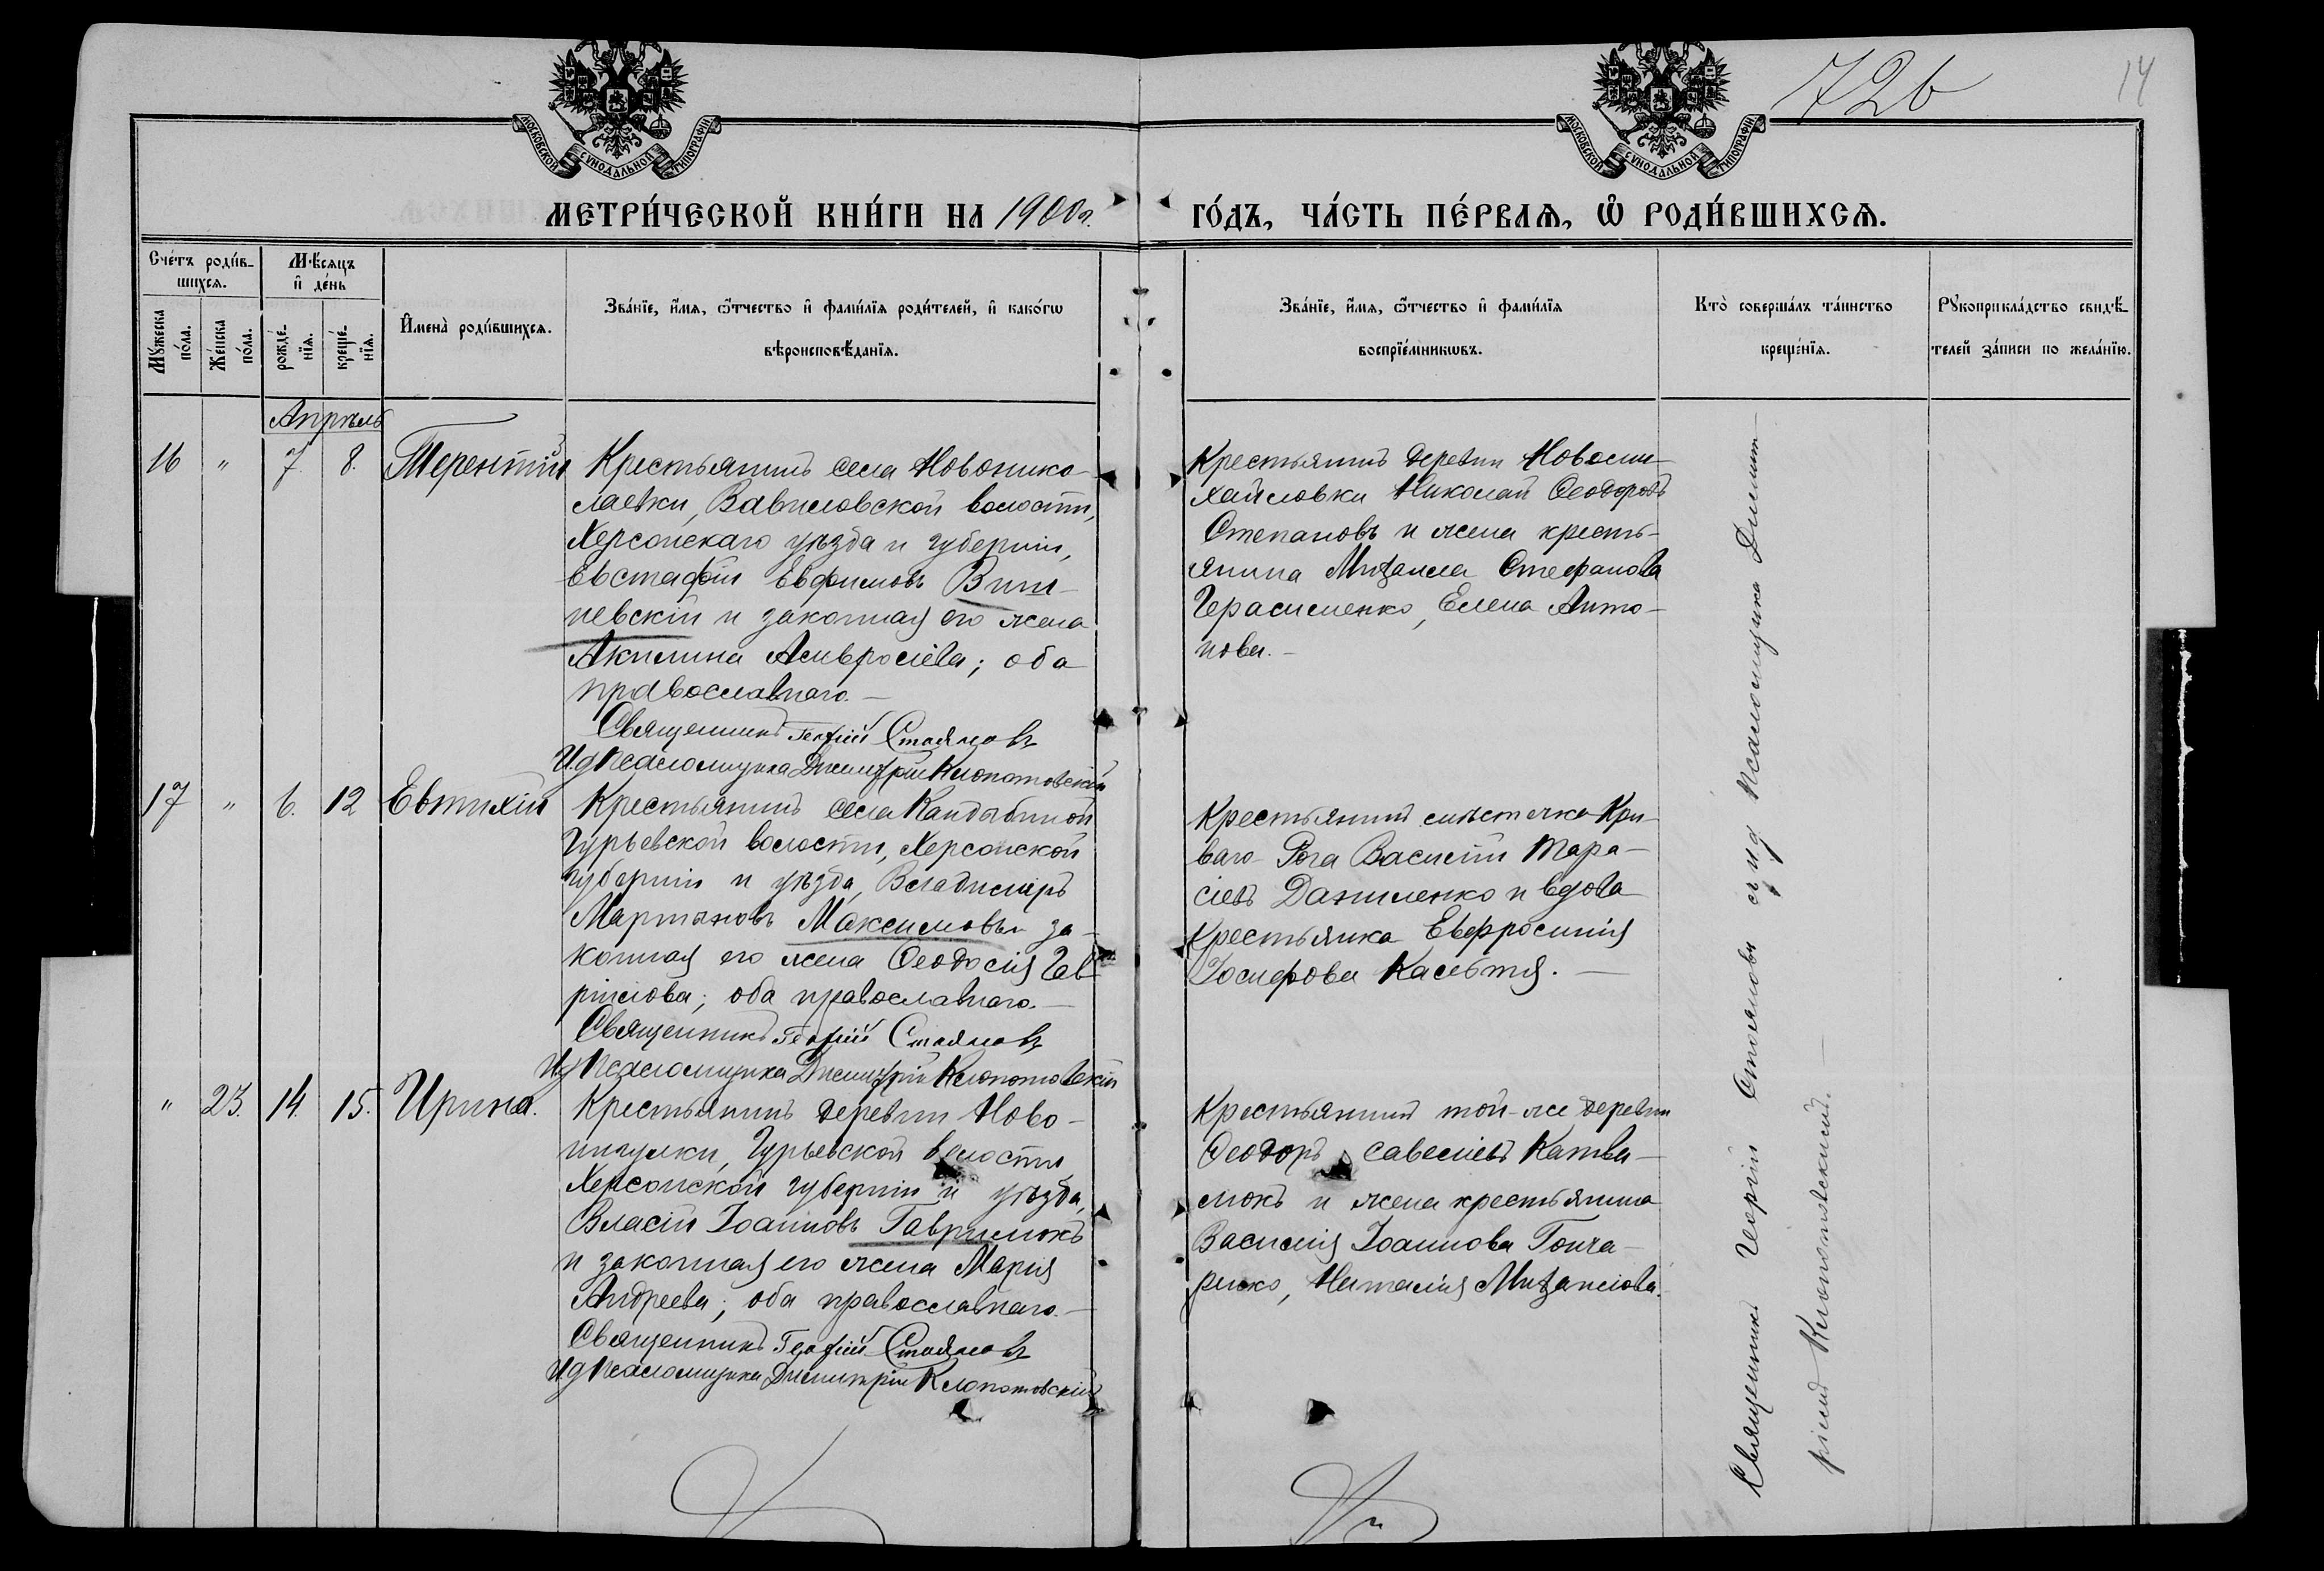 МОСКОВСКОЙ СѴНОДАЛЬНОЙ ТИПОГРАФІИ
МОСКОВСКОЙ СѴНОДАЛЬНОЙ ТИПОГРАФІИ
726
14
МЕТРИ́ЧЕСКОЙ КНИ́ГИ НА 1900 г. ГО́ДЪ, ЧА́СТЬ ПЕ́РВАѦ, Ѽ РОДИ́ВШИХСѦ.
Сче́тъ роди́в-
шихсѧ.
Мꙋ́жеска по́ла.
Же́нска по́ла.
Мѣ́сѧцъ
и҆ де́нь
рожде́-
нїѧ.
креще́-
нїѧ.
И҆мена̀ роди́вшихсѧ.
Зва́нїе, и҆́мѧ, ѻ҆́тчество и҆ фами́лїѧ роди́телей, и҆ како́гѡ
вѣроисповѣ́данїѧ.
Зва́нїе, и҆́мѧ, ѻ҆́тчество и҆ фами́лїѧ
воспрїе́мникѡвъ.
Кто̀ соверша́лъ та́инство
креще́нїѧ.
Рꙋкоприкла́дство свидѣ́-
телей за́писи по жела́нїю.
Апрѣль
16 " 7. 8. Терентій
Крестьянинъ села Новонико-
лаевки, Вавиловской волости,
Херсонскаго уѣзда и губерніи,
Евстафій Евфимовъ Виш-
невскій и законная его жена
Акилина Амвросіева; оба
православнаго. –
Священникъ Георгій Стояновъ
И.д. Псаломщика Димитрій Клопотовскій
Крестьянинъ деревни Новоми-
хайловки Николай Ѳеодоровъ
Степановъ и жена кресть-
янина Михаила Стефанова
Герасименко, Елена Анто-
нова. –
17 " 6. 12 Евтихій
Крестьянинъ села Кандыбиной
Гурьевской волости, Херсонской
губерніи и уѣзда, Владиміръ
Мартиновъ Максимовъ и за-
конная его жена Ѳеодосія Гав-
ріилова; оба православнаго. –
Священникъ Георгій Стояновъ
И.д. Псаломщика Димитрій Клопотовскій
Крестьянинъ мѣстечка Кри-
ваго Рога Василій Тара-
сіевъ Даниленко и вдова
крестьянка Евфросинія
Іосифова Касьтя. –
" 23. 14. 15. Ирина.
Крестьянинъ деревни Ново-
шмулки, Гурьевской волости
Херсонской губерніи и уѣзда,
Власій Іоанновъ Гаврилюкъ
и законная его жена Марія
Андреева; оба православнаго. –
Священникъ Георгій Стояновъ
И.д. Псаломщика Димитрій Клопотовскій
Крестьянинъ той-же деревни
Ѳеодоръ Савеліевъ Катва-
люкъ и жена крестьянина
Василія Іоаннова Гонча-
ренко, Наталія Михаилова.
Священникъ Георгій Стояновъ съ и.д. Псаломщика Димит-
ріемъ Клопотовскимъ. –